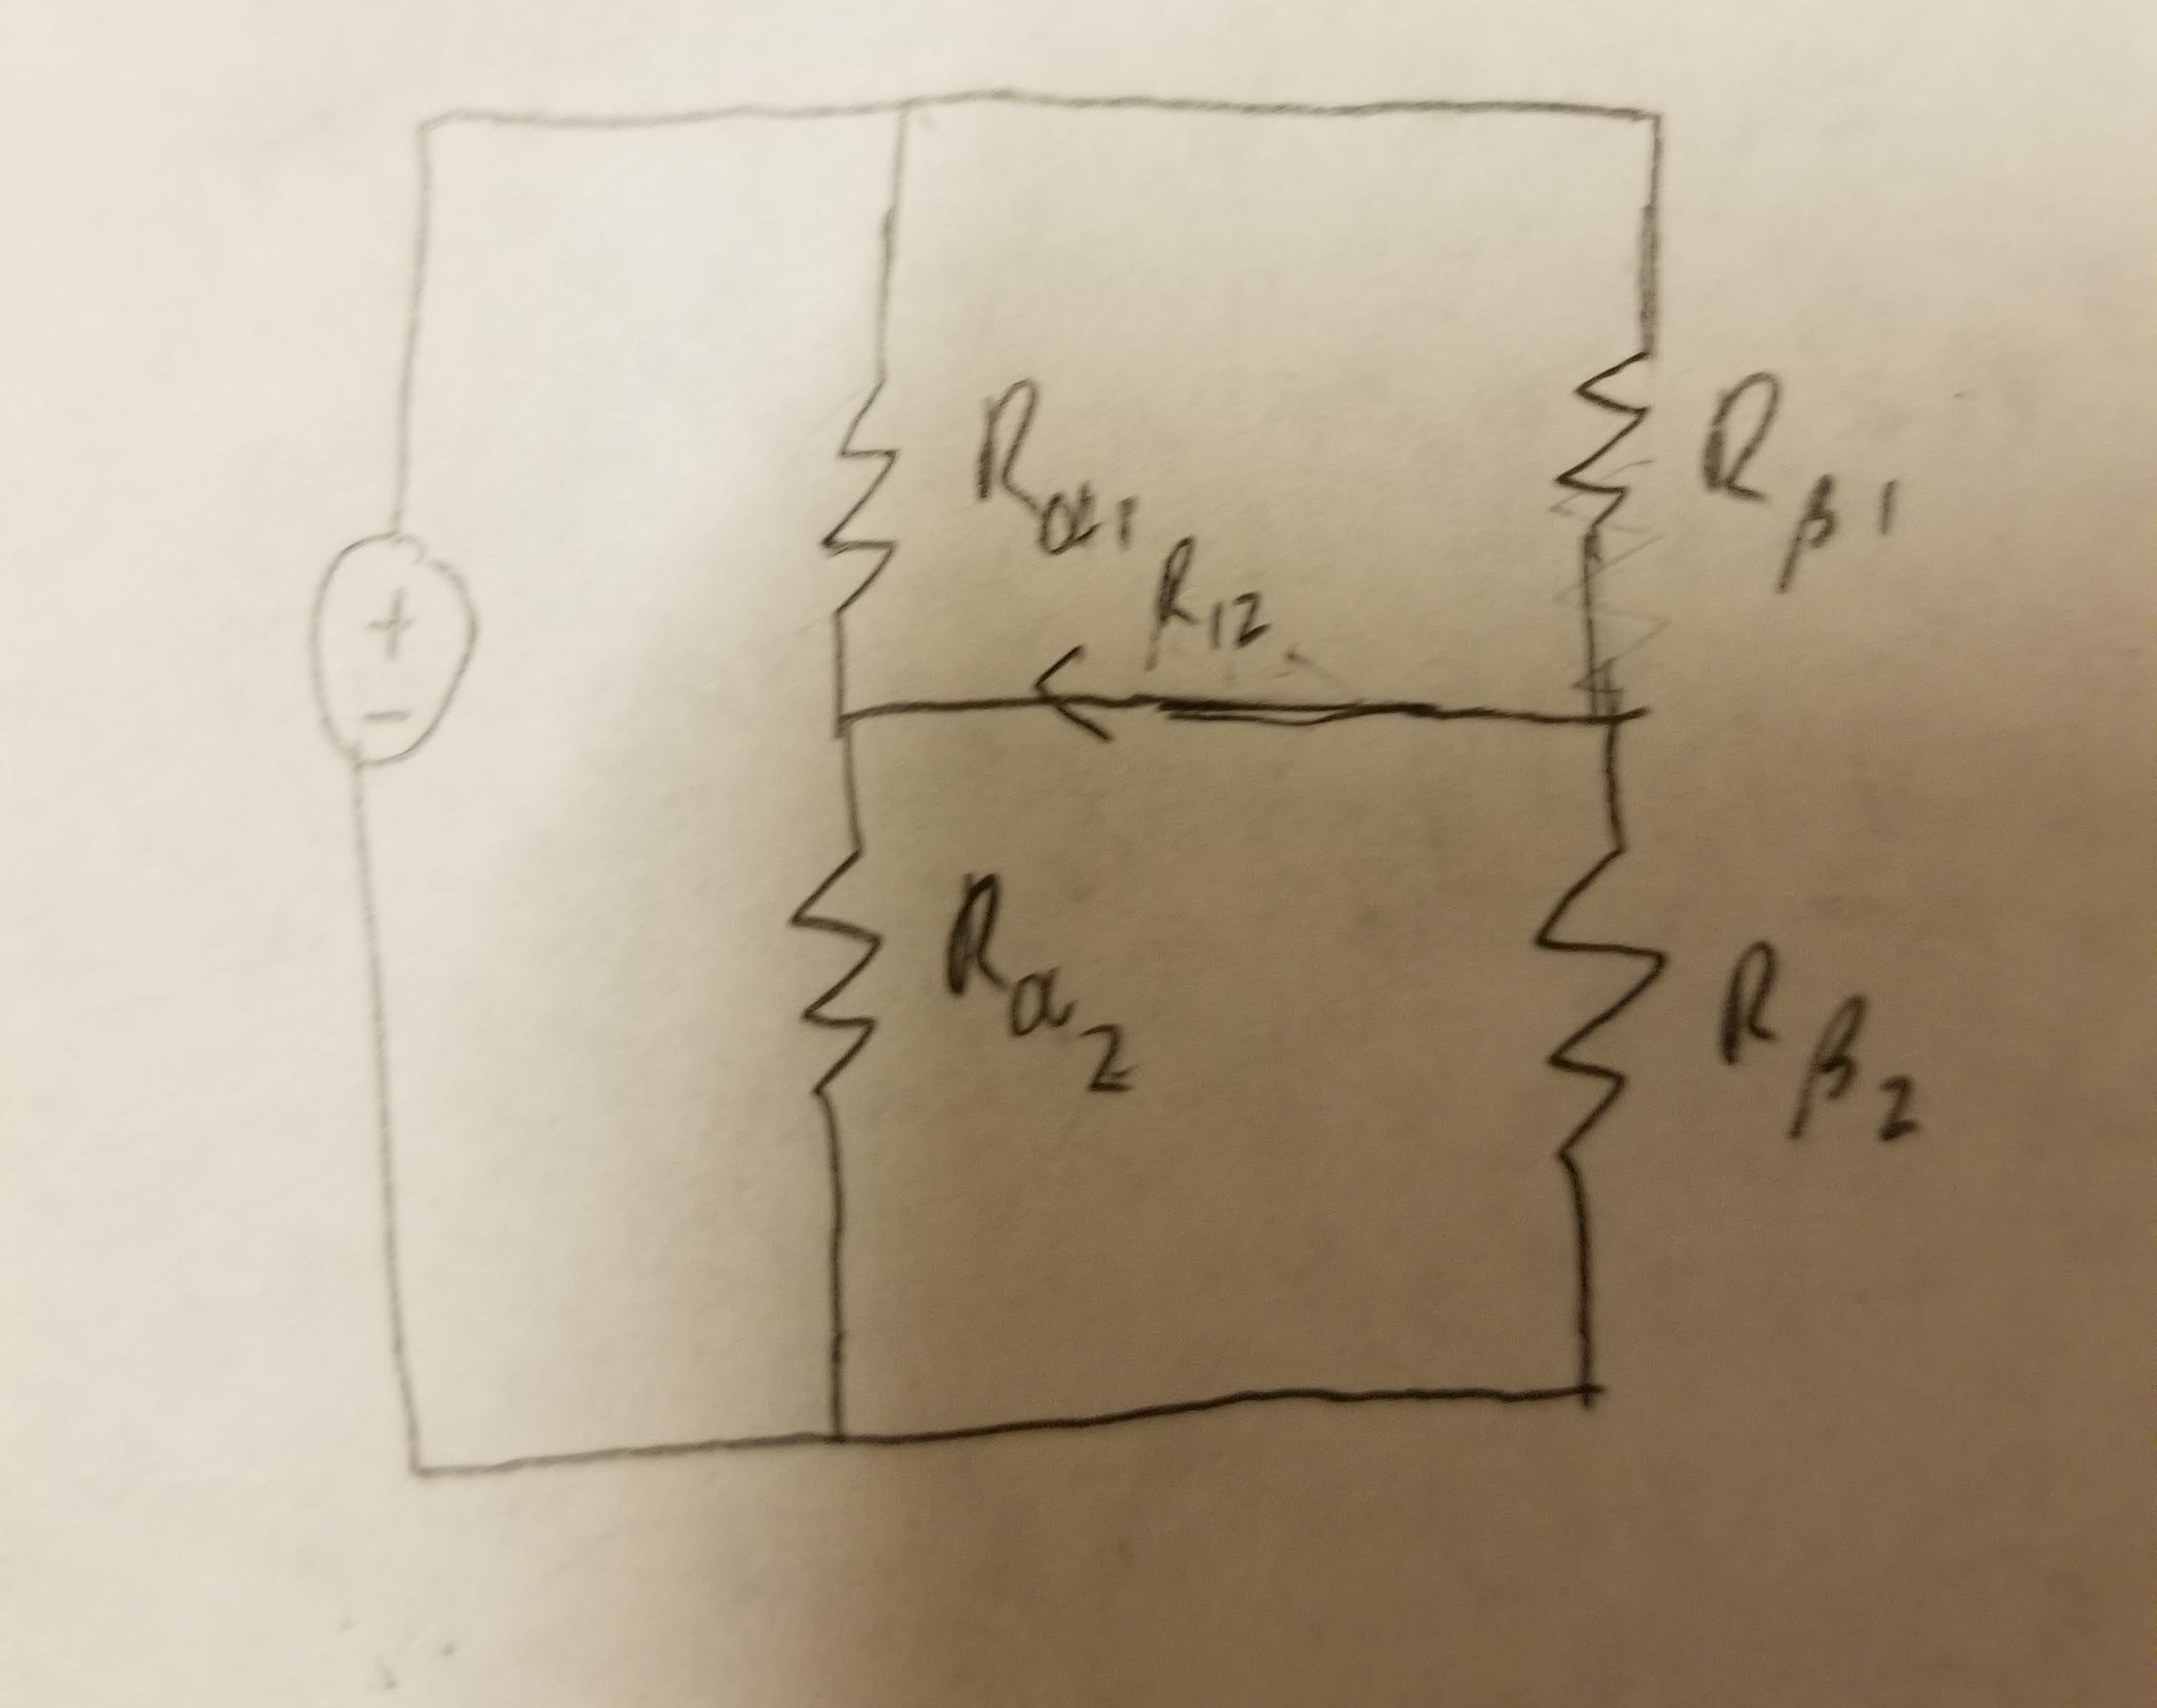 Rα1
Rβ1
R12
+
−
Rα2
Rβ2